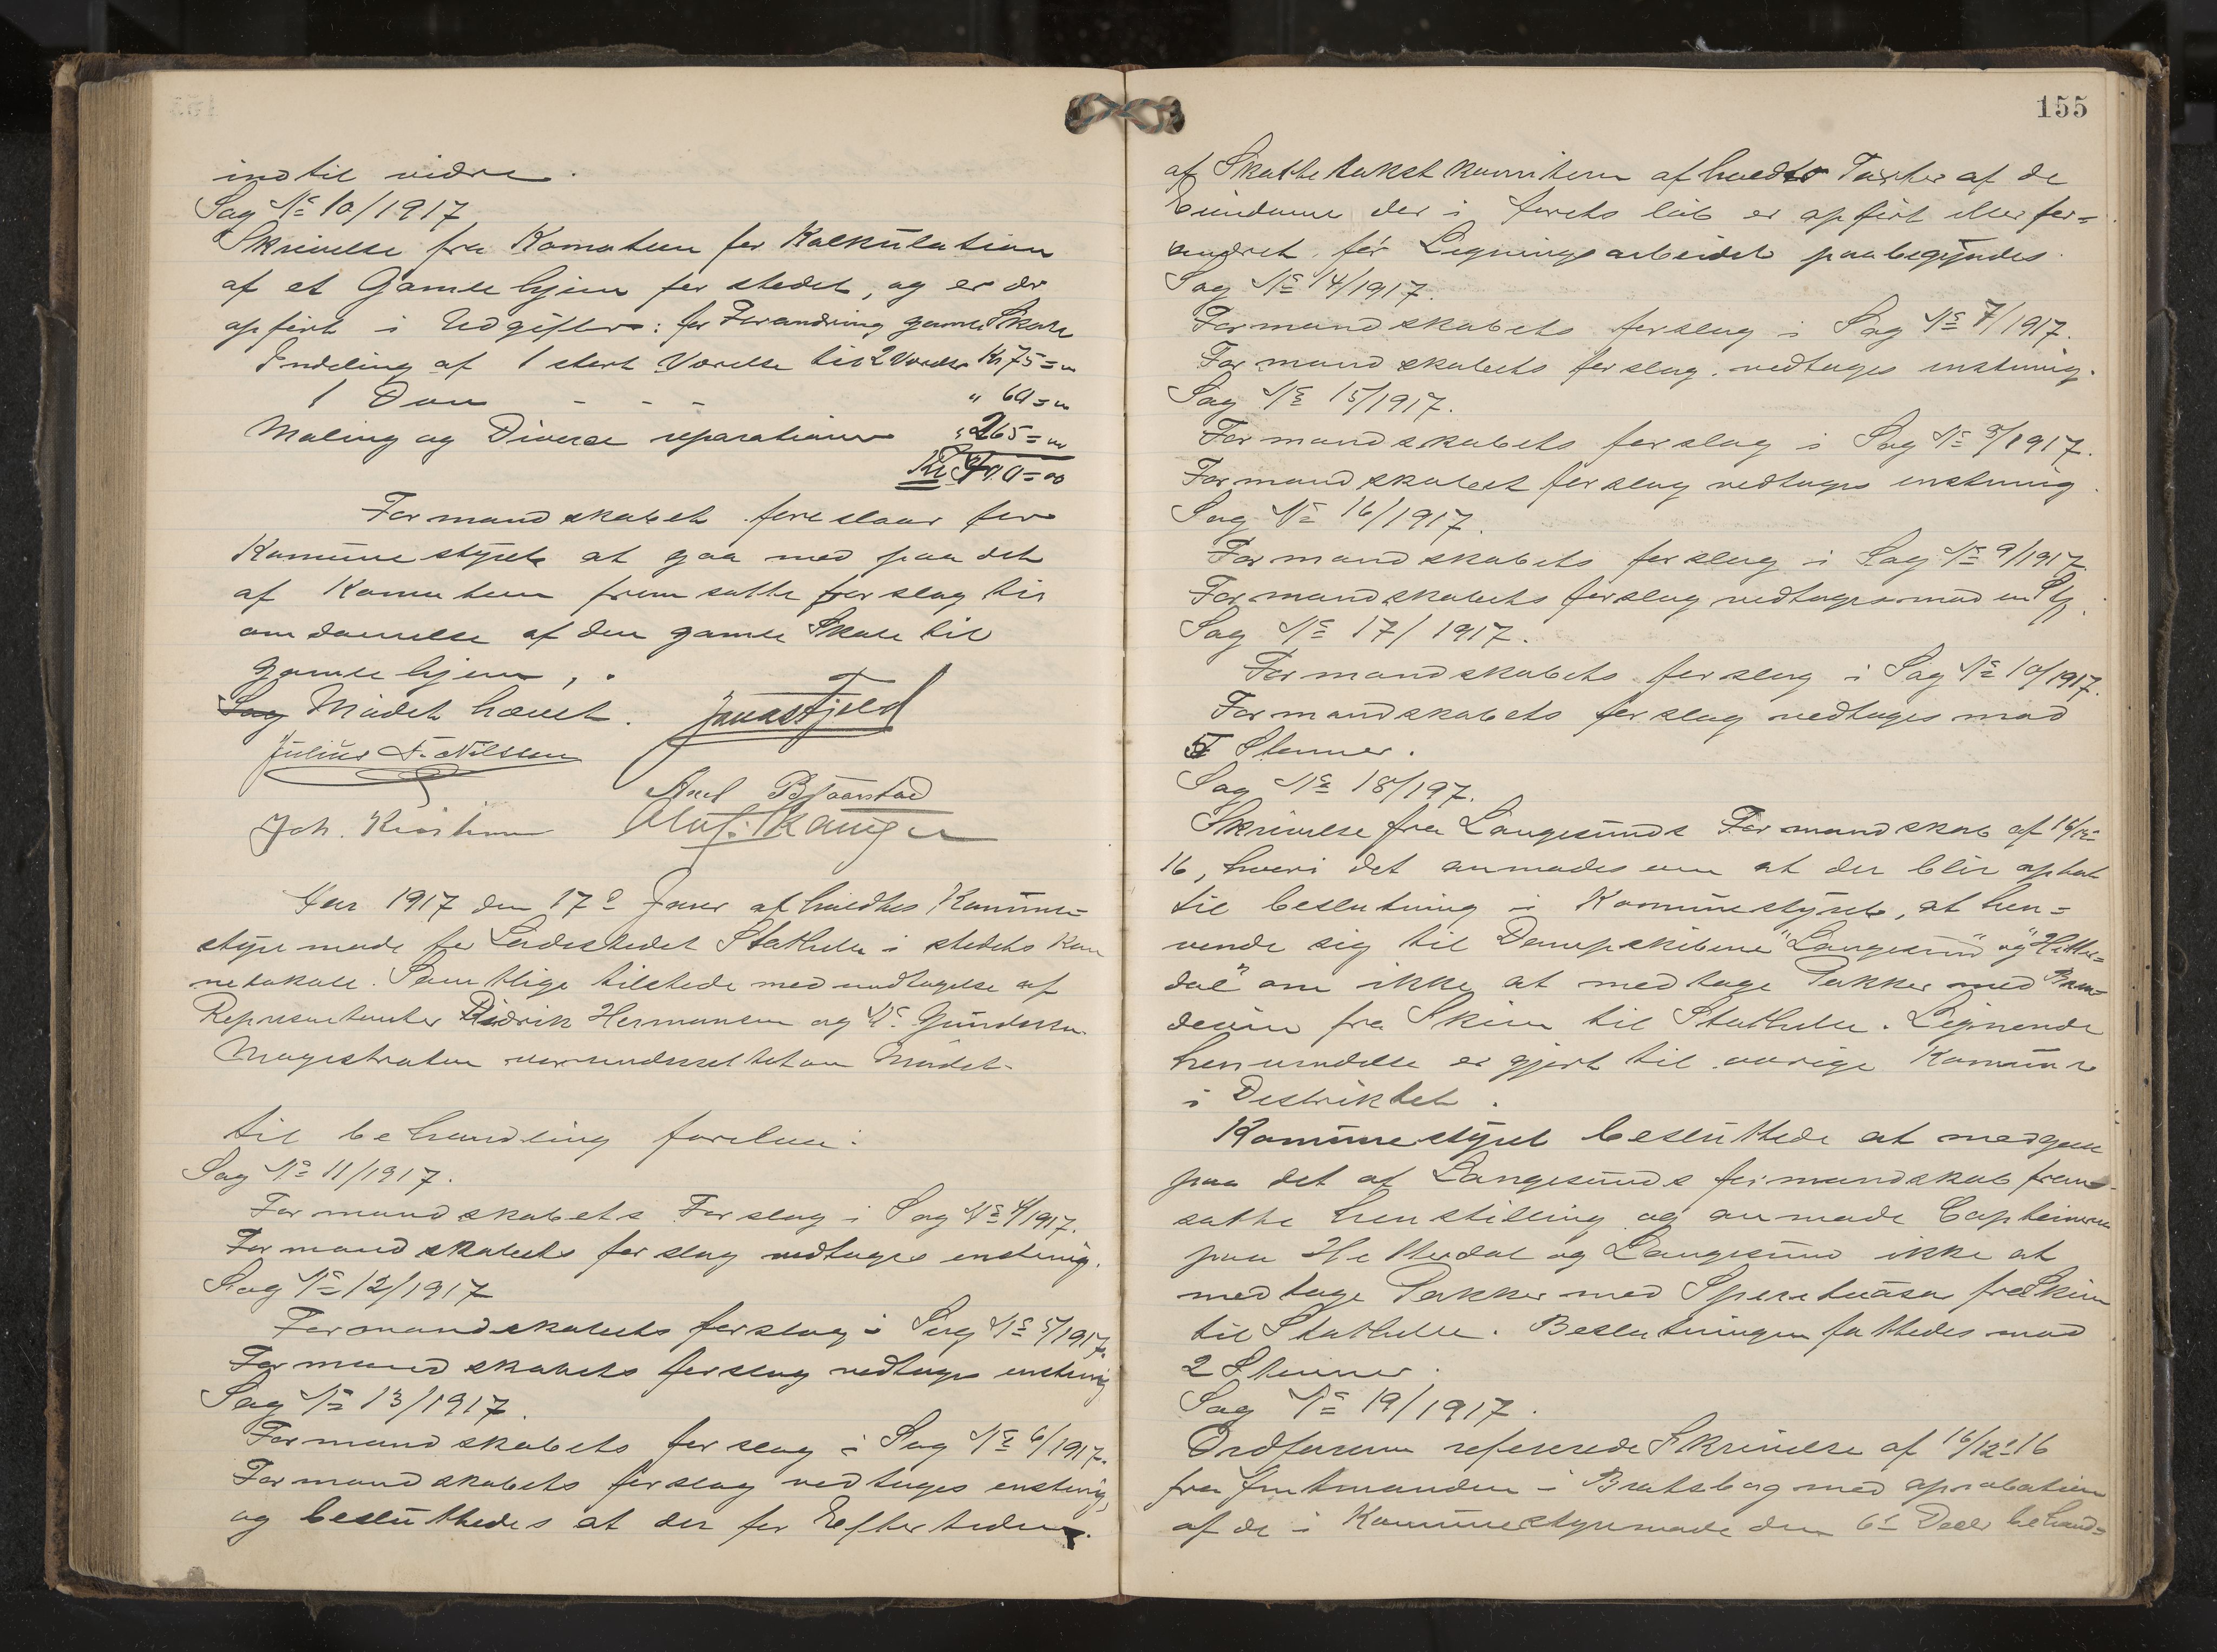 indtil videre.
Sag No 10/1917
Skrivelse fra Komiteen for Kalkulation
af et Gamlehjem for stedet, og er der
opført i Udgifter: for Forandring gamle Skole
Indeling af 1 stort Værelse til 2 Værelser Kr 75=00
1 Dør - - - " 60=00
Maling og Diverse reparationer " 265=00
Kr 400=00
Formandskabet foreslaar for
Komunestyret at gaa med paa det
af Komiteen fremsatte forslag til
omdannelse af den gamle Skole til
gamlehjem,.
Sag Mødet hævet. Jonas Fjeld
Julius F. Nilssen
Axel Bjaarstad
Joh. Olaf.
Aar 1917 den 17de Januar afholdtes Komune-
styremøde for Ladestedet Stathelle i stedets Kom
nelokale. Samtlige tilstede med undtagelse af
Representanter Didrik Hermansen og N. Gundersen
Magistraten var underrettet om Mødet.
til behandling forelaa:
Sag No 11/1917.
Formandskabets Forslag i Sag No 4/1917.
Formandskabets forslag vedtages enstemig.
Sag No 12/1917
Formandskabets forslag i Sag No 5/1917.
Formandskabets forslag vedtages enstemig
Sag No 13/1917.
Formandskabets forslag i Sag No 6/1917.
Formandskabets forslag vedtages enstemig,
og besluttedes at der for Eftertiden
155
af Skattetakstkomiteen afholdes Takster af de
Eiendomme der i aarets løb er opført eller for-
andret, før Ligningsarbeidet paabegyndes.
Sag No 14/1917.
Formandskabets forslag i Sag No 7/1917.
Formandskabets forslag vedtages enstemig.
Sag No 15/1917.
Formandskabets forslag i Sag No 8/1917.
Formandskabets forslag vedtages enstemig.
Sag No 16/1917.
Formandskabets forslag i Sag No 9/1917
Formandskabets forslag vedtages mod en St.
Sag No 17/1917.
Formandskabets forslag i Sag No 10/1917.
Formandskabets forslag vedtages mod
5 Stemmer.
Sag No 18/197.
Skrivelse fra Langesunds Formandskab af 16/12-
16, hvori det anmodes om at der blir optat
til beslutning i Komunestyret, at hen-
vende sig til Dampskibene "Langesund" og "Hitter-
dal" om ikke at medtage Pakker med Bræn-
devin fra Skien til Stathelle. Lignende
henvendelse er gjort til øvrige Komuner
i Distriktet.
Komunestyret besluttede at medgaa
paa det af Langesunds formandskab frem-
satte henstilling og anmode Capteinerne
paa Hitterdal og Langesund ikke at
medtage Pakker med Sperituøsa fra Skien
til Stathelle. Beslutningen fattedes mod
2 Stemmer.
Sag No 19/1917.
Ordføreren refererede Skrivelse af 16/12-16
fra Amtmanden i Bratsberg med aprobation
af de i Komunestyremøde den 6te Decbr behand-